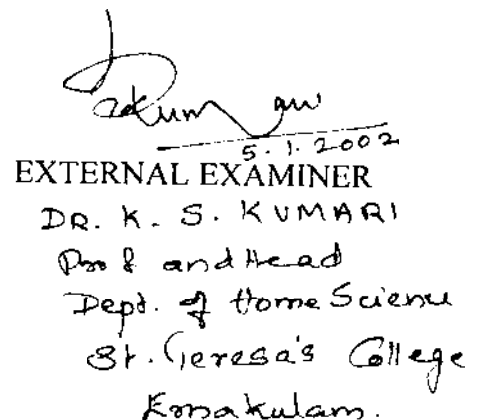 5.1.2002
EXTERNAL EXAMINER
DR. K. S. KUMARI
Prof and Head
Dept. of Home Science
St. Teresa's College
Ernakulam.